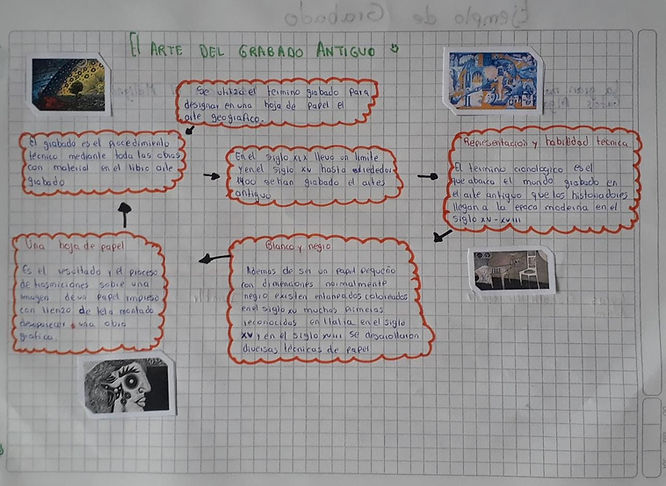 El ARTE DEL GRABADO ANTIGUO
Se utiliza el termino grabado para
designar en una hoja de papel el
arte geografico.
El grabado es el procedimiento
técnico mediante toda las obras
con material en el arte
grabado
En el siglo XIX llevo un limite
y en el siglo XV hasta alrededor
1900 grabado el artes
antiguo
Representacion y habilidad técnica
El termino cronologico es el
que abarca el mundo grabado en
el arte antiguo que los historiadores
llegan a la época moderna en el
siglo XV - XVIII
Una hoja de papel
Es el resultado y el proceso
de trasmiciones sobre una
imagen de un papel impreso
con lienzo de tela montado
desaparecer una obra
grafica.
Blanco y negro
Ademas de ser un papel pequeño
con dimenciones normalmente
negro existen estanpados coloreados
en el siglo XV muchos primeras
reconocidos en Italia en el siglo
XV y en el siglo XVIII se desarrollaron
diversas técnicas de papel
Ejemplo de Grabado